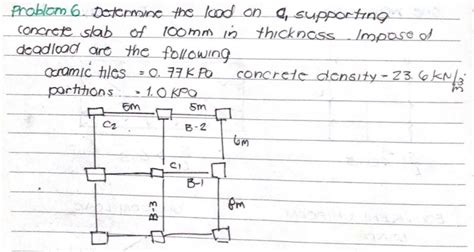 Problem 6. Determine the load on C1, supporting
concrete slab of 100mm in thickness. Imposed
deadload are the following
ceramic tiles = 0.77 KPa concrete density - 23.6 kN/m³
partitions = 1.0 KPa
5m 5m
C2 B-2
6m
C1
B-1
B-3 8m